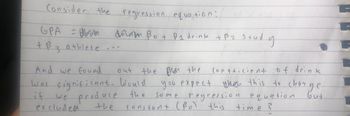 Consider the regression equation:
GPA = β0 + β1 drink + β2 study
+ β3 athlete ...
And we found out the the coefficient of drink
was significant. Would you expect this to change
if we produce the same regression equation but
excluded the constant (β0) this time?